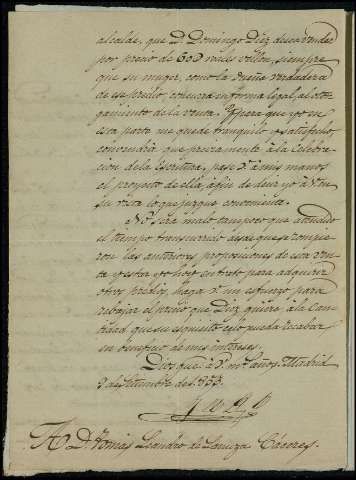 alcalde, que D. Domingo Diez desea vender
por precio de 600 reales vellon, siempre
que su muger, como la dueña verdadera
de ese predio, concurra informa legal, al otor-
gamiento de la venta. Y para que yo en
esta parte me quede tranquilo y satisfecho
convendrá que previamente à la celebra-
cion de la escritura, pase V. á mis manos
el proyecto de ella, afin de decir yo à V. en
su vista lo que juzgue conveniente.
No será malo tampoco que atendido
el tiempo transcurrido desde que se rompie-
ron las anteriores proposiciones de esta ven-
ta y estar yo hoy en trato para adquirir
otros predios, haga V. un esfuerzo para
rebajar el precio que Diez quiere à la can-
tidad que su esquisito celo pueda recabar
en beneficio de mis intereses.
Dios gue. à V. ms. años. Madrid
de Setiembre de 1853.
A D. Tomás Leandro de Cáceres.